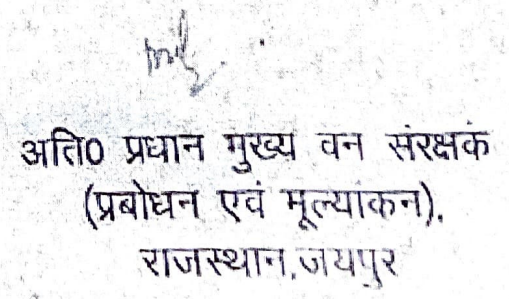 अति0 प्रधान मुख्य वन संरक्षक
(प्रबोधन एवं मूल्यांकन),
राजस्थान,जयपुर